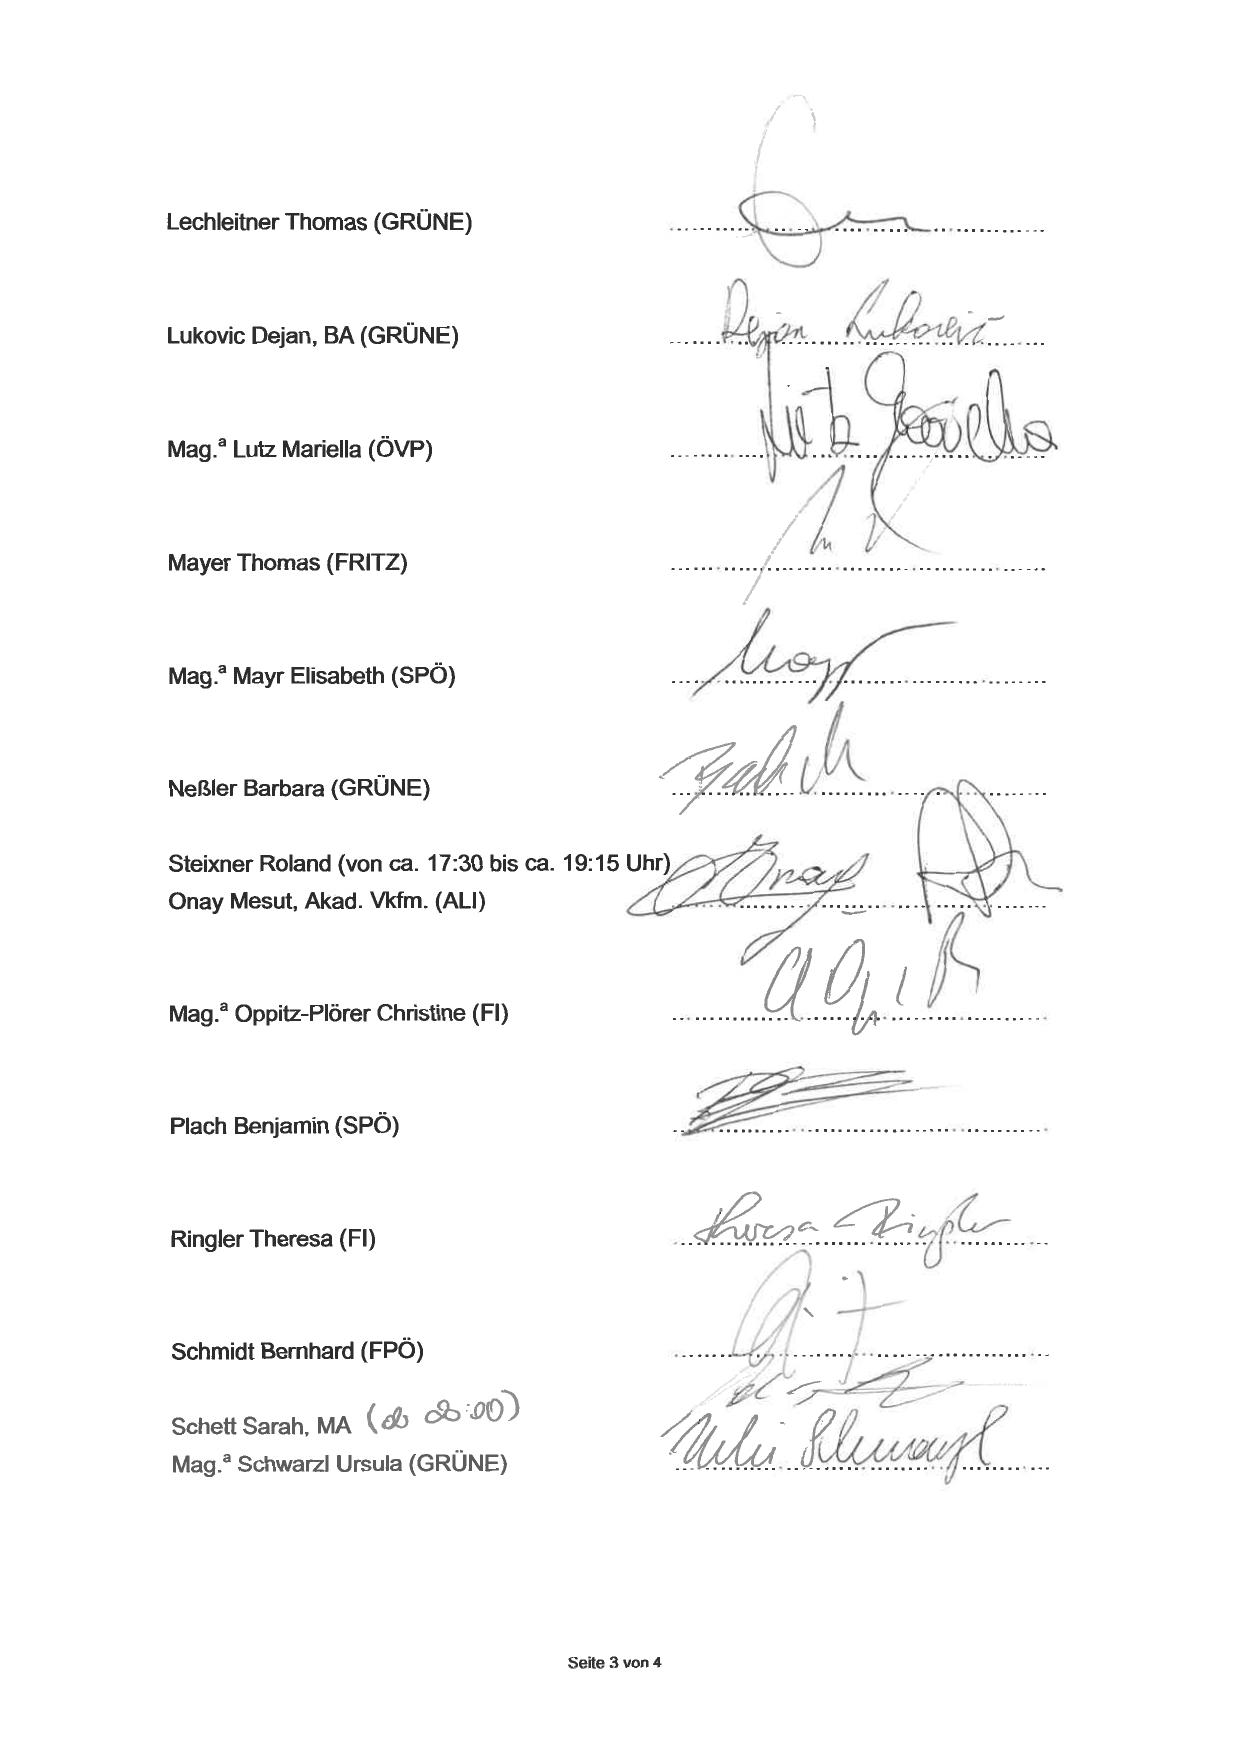 Lechleitner Thomas (GRÜNE)
Lukovic Dejan, BA (GRÜNE) Dejan Lukovic
Mag.ª Lutz Mariella (ÖVP) Lutz Mariella
Mayer Thomas (FRITZ)
Mag.ª Mayr Elisabeth (SPÖ) Mayr
Neßler Barbara (GRÜNE)
Steixner Roland (von ca. 17:30 bis ca. 19:15 Uhr)
Onay Mesut, Akad. Vkfm. (ALI) Onay
Mag.ª Oppitz-Plörer Christine (FI)
Plach Benjamin (SPÖ)
Ringler Theresa (FI) Theresa Ringler
Schmidt Bernhard (FPÖ)
Schett Sarah, MA
Mag.ª Schwarzl Ursula (GRÜNE) Schwarzl
Seite 3 von 4